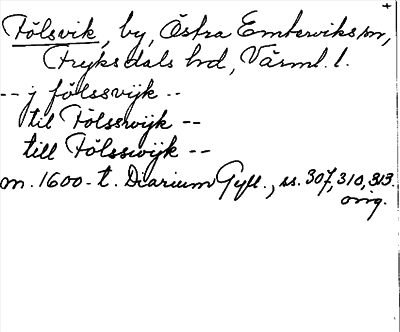 Fölsvik, by, Östra Emterviks sn,
Fryksdals hd, Värml. l.
-- j fölssvijk --
til Fölsswijk --
till Fölsswijk --
m. 1600-t. Diarium Gyll., ss. 307, 310, 313.
orig.